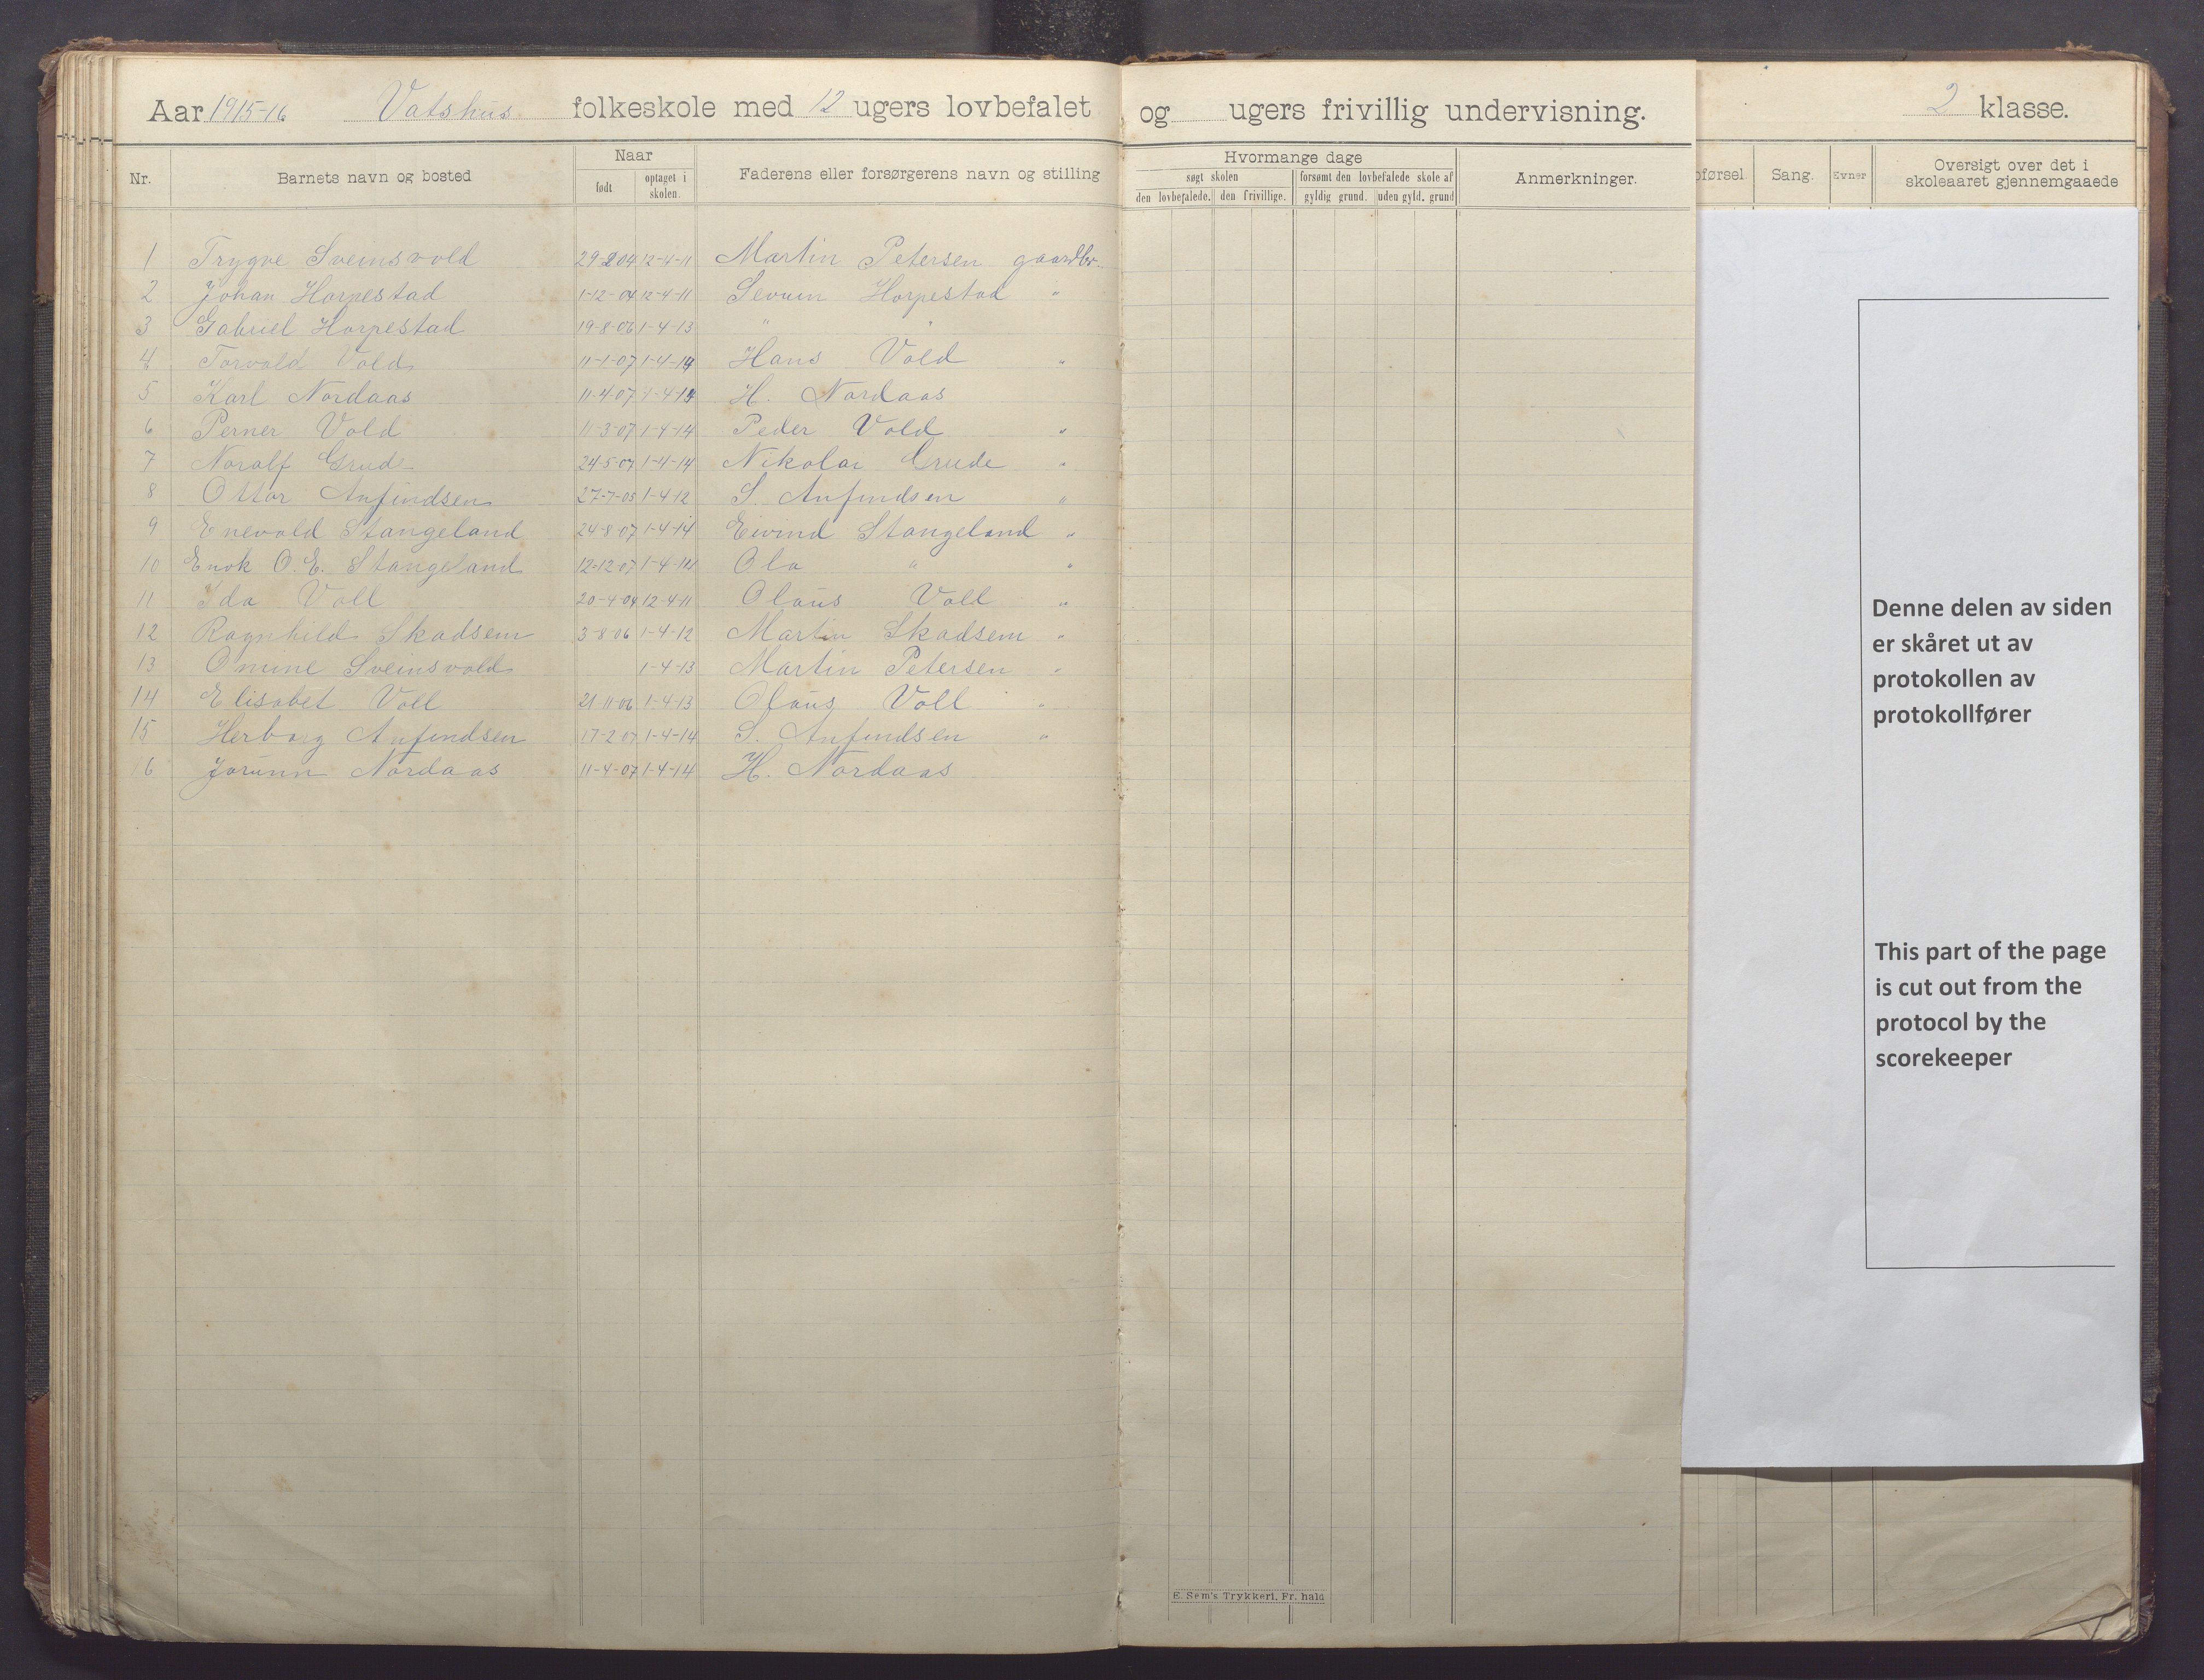 Aar 1915-16 Vatshus folkeskole med 12 ugers lovbefalet og ugers frivillig undervisning. 2 klasse.
Nr. Barnets navn og bosted Naar født optaget i skolen. Faderens eller forsørgerens navn og stilling Hvormange dage søgt skolen den lovbefalede. den frivillige. forsømt den lovbefalede skole af gyldig grund. uden gyld. grund Anmerkninger. Sang. Evner Oversigt over det i skoleaaret gjennemgaaede
1 Trygve Sveinsvold 29-2 04 12-4-11 Martin Petersen gaardbr.
2 Johan Horpestad 1-12-04 12-4-11 Horpestad "
3 Gabriel Horpestad 19-8-06 1-4-13 " "
4 Torvald Vold 11-1-07 1-4-14 Hans Vold "
5 Karl Nordaas 11-4-07 1-4-14 H. Nordaas
6 Perner Vold 11-3-07 1-4-14 Peder Vold "
7 Noralf Grude 24-5-07 1-4-14 Nikolai Grude "
8 Ottar Anfindsen 27-7-05 1-4-12 S. Anfindsen "
9 Enevald Stangeland 24-8-07 1-4-14 Eivind Stangeland "
10 Enok O. E. Stangeland 12-12-07 1-4-14 Ola " "
11 Ida Voll 20-4-04 12-4-11 Olaus Voll "
12 Ragnhild Skadsem 3-8-06 1-4-12 Martin Skadsem "
13 Sveinsvold 1-4-13 Martin Petersen "
14 Elisabet Voll 21-11-06 1-4-13 Olaus Voll "
15 Herborg Anfindsen 17-2-07 1-4-14 S. Anfindsen "
16 Jorunn Nordaas 11-4-07 1-4-14 H. Nordaas
E. Sem's Trykkeri, Fr. hald
Denne delen av siden
er skåret ut av
protokollen av
protokollfører
This part of the page
is cut out from the
protocol by the
scorekeeper